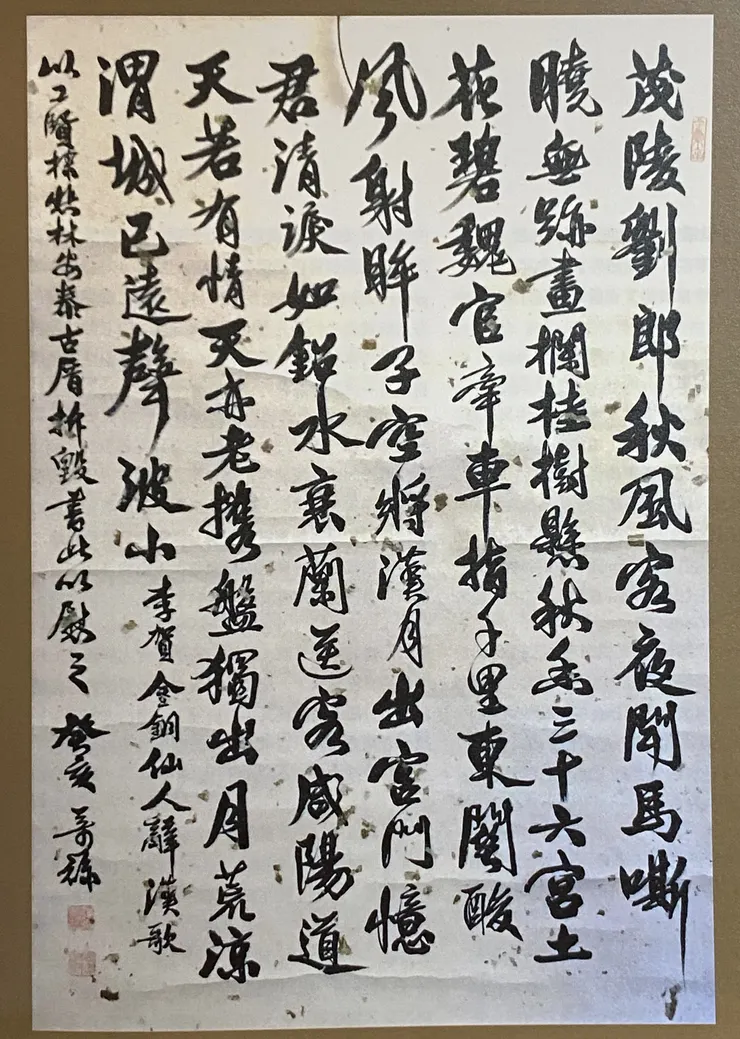 茂陵劉郎秋風客夜聞馬嘶
曉無跡畫欄桂樹懸秋香三十六宮土
花碧魏官牽車指千里東關酸
風射眸子空將漢月出宮門憶
君清淚如鉛水衰蘭送客咸陽道
天若有情天亦老攜盤獨出月荒涼
渭城已遠聲波小 李賀金銅仙人辭漢歌
賢 林安泰古厝拆毀書此以慰之 癸亥